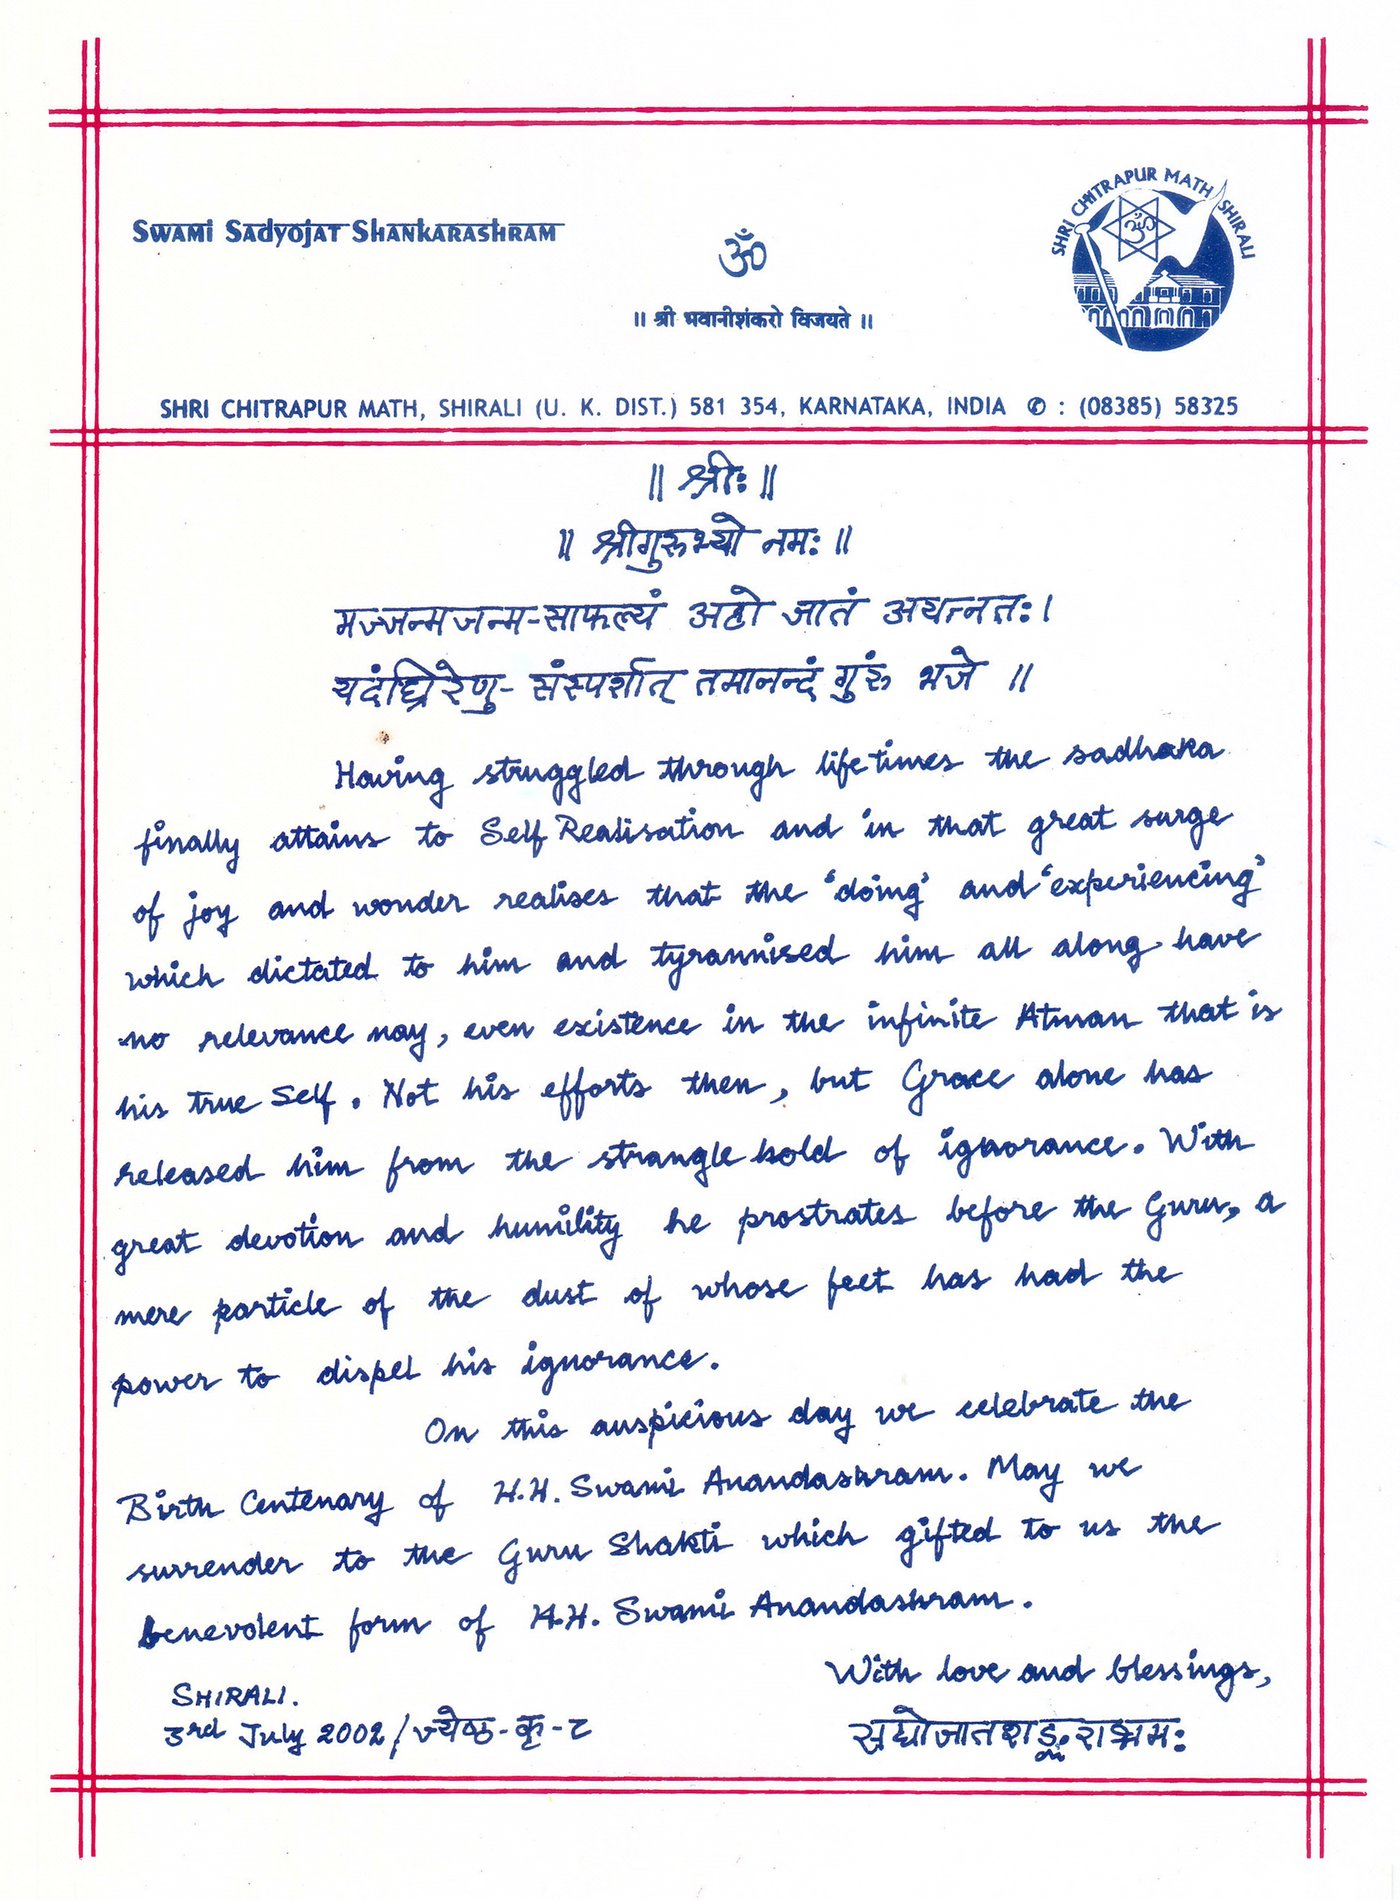 Swami Sadyojat Shankarashram
ॐ
॥ श्री भवानीशंकरो विजयते ॥
SHRI CHITRAPUR MATH SHIRALI
ॐ
SHRI CHITRAPUR MATH, SHIRALI (U. K. DIST.) 581 354, KARNATAKA, INDIA ✆ : (08385) 58325
॥ श्रीः ॥
॥ श्रीगुरुभ्यो नमः ॥
मज्जन्मजन्म-साफल्यं अहो जातं अयत्नतः।
यदंघ्रिरेणु-संस्पर्शात् तमानन्दं गुरुं भजे ॥
Having struggled through lifetimes the sadhaka
finally attains to Self Realisation and in that great surge
of joy and wonder realises that the 'doing' and 'experiencing'
which dictated to him and tyrannised him all along have
no relevance nay, even existence in the infinite Atman that is
his true Self. Not his efforts then, but Grace alone has
released him from the stranglehold of ignorance. With
great devotion and humility he prostrates before the Guru, a
mere particle of the dust of whose feet has had the
power to dispel his ignorance.
On this auspicious day we celebrate the
Birth Centenary of H.H. Swami Anandashram. May we
surrender to the Guru Shakti which gifted to us the
benevolent form of H.H. Swami Anandashram.
With love and blessings,
SHIRALI.
3rd July 2002/ज्येष्ठ-कृ-८
सद्योजातशङ्कराश्रमः